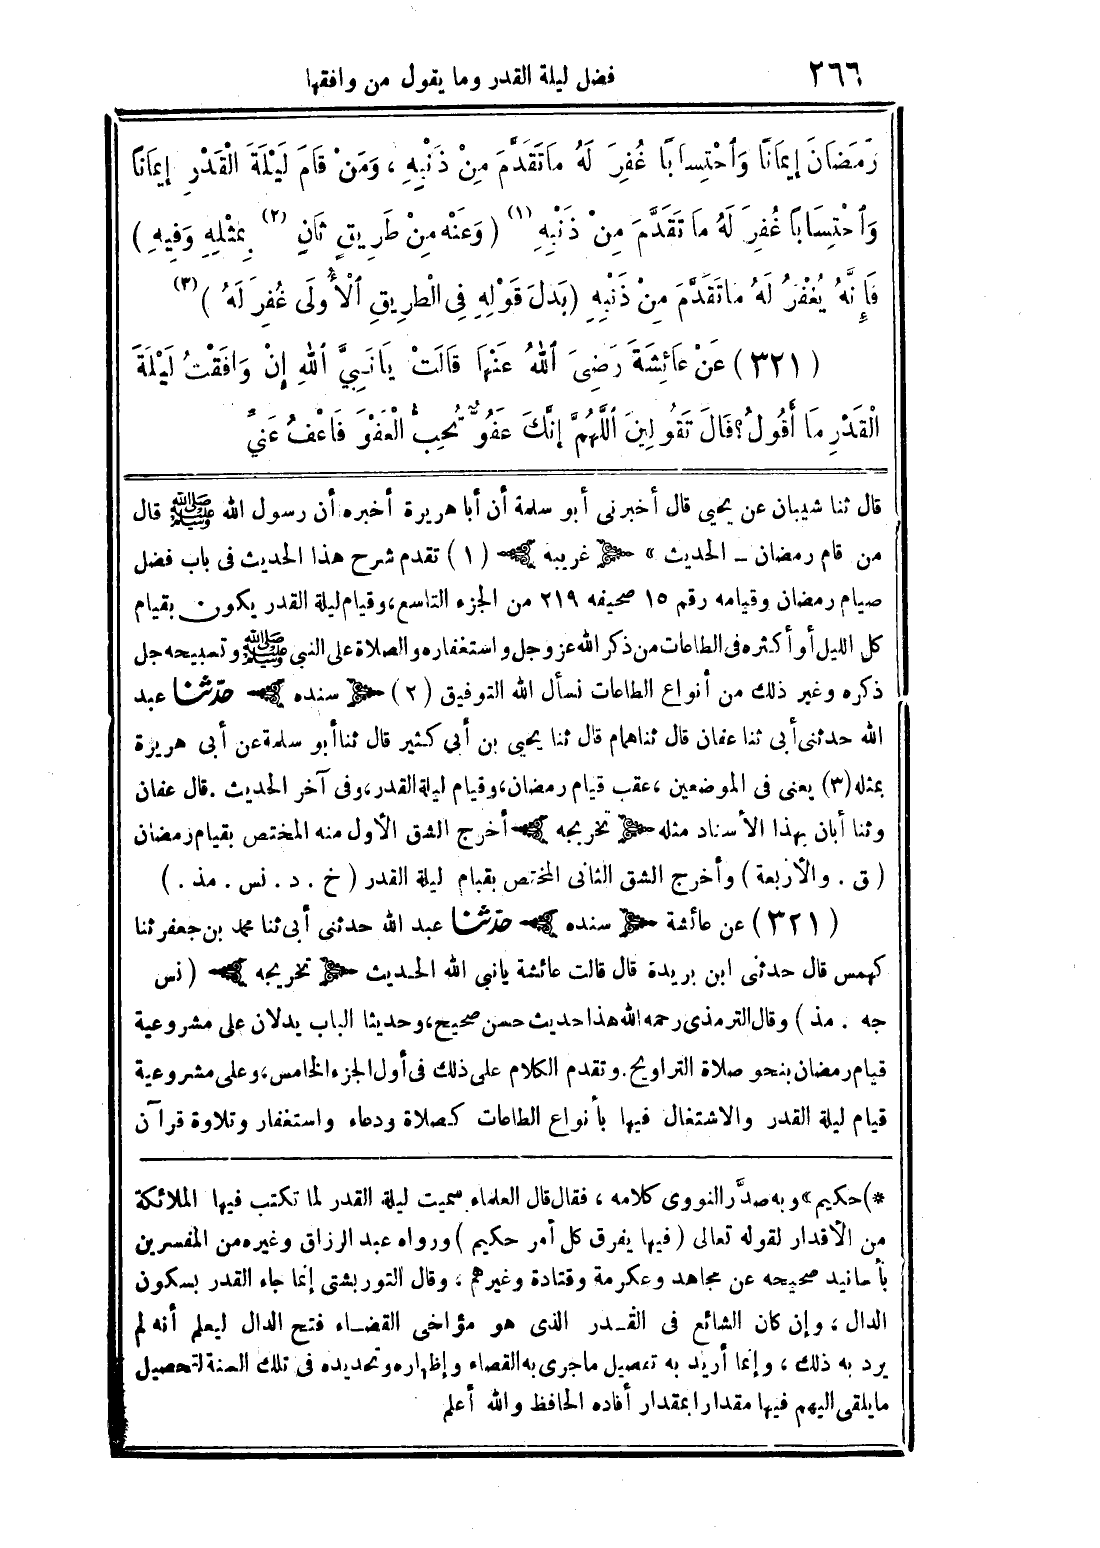 ٢٦٦ فضل ليلة القدر وما يقول من وافقها
رَمَضَانَ إِيمَانًا وَٱحْتِسَابًا غُفِرَ لَهُ مَاتَقَدَّمَ مِنْ ذَنْبِهِ ، وَمَنْ قَامَ لَيْلَةَ الْقَدْرِ إِيمَانًا
وَٱحْتِسَابًا غُفِرَ لَهُ مَا تَقَدَّمَ مِنْ ذَنْبِهِ (١) ( وَعَنْهُ مِنْ طَرِيقٍ ثَانٍ (٢) بِمِثْلِهِ وَفِيهِ )
فَإِنَّهُ يُغْفَرُ لَهُ مَاتَقَدَّمَ مِنْ ذَنْبِهِ (بَدَلَ قَوْلِهِ فِى الْطَرِيقِ الْأُولَى غُفِرَ لَهُ ) (٣)
( ٣٢١ ) عَنْ عَائِشَةَ رَضِىَ ٱللهُ عَنْهَا قَالَتْ يَانَبِيَّ ٱللهِ إِنْ وَافَقْتُ لَيْلَةَ
الْقَدْرِ مَا أَقُولُ؟ قَالَ تَقُولِينَ ٱللَّهُمَّ إِنَّكَ عَفُوٌّ تُحِبُّ الْعَفْوَ فَاعْفُ عَنِّي
قال ثنا شيبان عن يحيى قال أخبرنى أبو سلمة أن أبا هريرة أخبره أن رسول الله ﷺ قال
من قام رمضان ــ الحديث » ﴿ غريبه ﴾ ( ١ ) تقدم شرح هذا الحديث فى باب فضل
صيام رمضان وقيامه رقم ١٥ صحيفه ٢١٩ من الجزء التاسع، وقيام ليلة القدر يكون بقيام
كل الليل أو أكثره فى الطاعات من ذكر الله عز وجل واستغفاره والصلاة على النبى ﷺ وتسبيحه جل
ذكره وغير ذلك من أنواع الطاعات نسأل الله التوفيق ( ٢ ) ﴿ سنده ﴾ حدّثنا عبد
الله حدثنى أبى ثنا عفان قال ثنا همام قال ثنا يحيى بن أبى كثير قال ثنا أبو سلمة عن أبى هريرة
بمثله (٣) يعنى فى الموضعين ، عقب قيام رمضان، وقيام ليلة القدر، وفى آخر الحديث . قال عفان
وثنا أبان بهذا الأسناد مثله ﴿ تخريجه ﴾ أخرج الشق الأول منه المختص بقيام رمضان
( ق . والأربعة ) وأخرج الشق الثانى المختص بقيام ليلة القدر ( خ . د . نس . مذ . )
( ٣٢١ ) عن عائشة ﴿ سنده ﴾ حدّثنا عبد الله حدثنى أبى ثنا محمد بن جعفر ثنا
كهمس قال حدثنى ابن بريدة قال قالت عائشة يانبي الله الحديث ﴿ تخريجه ﴾ ( نس
جه . مذ ) وقال الترمذى رحمه الله هذا حديث حسن صحيح، وحديثا الباب يدلان على مشروعية
قيام رمضان بنحو صلاة التراويح. وتقدم الكلام على ذلك فى أول الجزء الخامس، وعلى مشروعية
قيام ليلة القدر والاشتغال فيها بأنواع الطاعات كصلاة ودعاء واستغفار وتلاوة قرآن
*)حكيم» وبه صدَّر النووى كلامه ، فقال قال العلماء سميت ليلة القدر لما تكتب فيها الملائكة
من الأقدار لقوله تعالى ( فيها يفرق كل أمر حكيم ) ورواه عبد الرزاق وغيره من المفسرين
بأسانيد صحيحه عن مجاهد وعكرمة وقتادة وغيرهم ، وقال التوربشتى إنما جاء القدر بسكون
الدال ، وإن كان الشائع فى القـدر الذى هو مؤاخى القضاء فتح الدال ليعلم أنه لم
يرد به ذلك ، وإنما أريد به تفصيل ماجرى به القضاء وإظهاره وتحديده فى تلك السنة لتحصيل
مايلقى اليهم فيها مقدارا بمقدار أفاده الحافظ والله أعلم